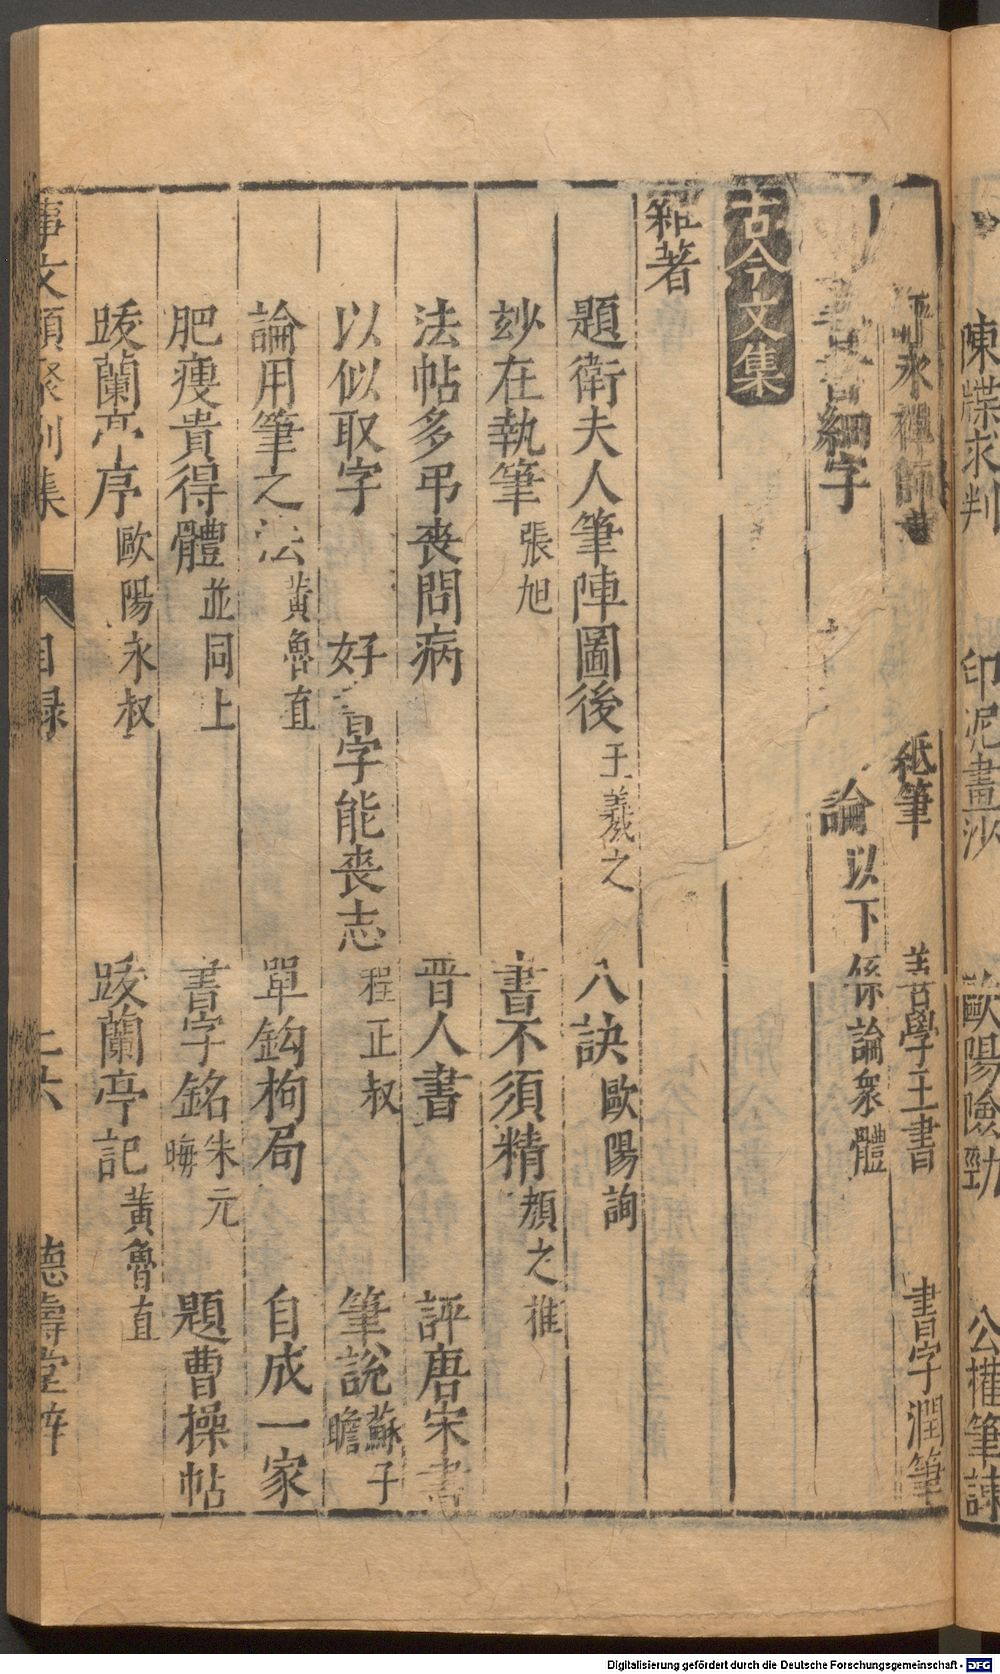 陳牒求判 印泥畫沙 歐陽險勁 公權筆諫
永禪師 紙筆 善學王書 書字潤筆
細字 論以下係論衆體
古今文集
雜著
題衛夫人筆陣圖後王羲之 八訣歐陽詢
玅在執筆張旭 書不須精顏之推
法帖多弔喪問病 晋人書 評唐宋書
以似取字 好書字能喪志程正叔 筆說蘇子瞻
論用筆之法黃魯直 單鈎枸局 自成一家
肥瘦貴得體並同上 書字銘朱元晦 題曹操帖
跋蘭亭序歐陽永叔 跋蘭亭記黃魯直
事文類聚別集 目録 德壽堂梓
Digitalisierung gefördert durch die Deutsche Forschungsgemeinschaft - DFG